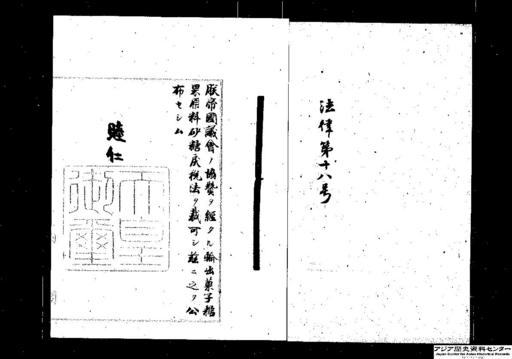 法律第十八号
朕帝國議會ノ協賛ヲ經タル輸出菓子糖
果原料砂糖戻税法ヲ裁可シ茲ニ之ヲ公
布セシム
睦仁
天皇
御璽
アジア歴史資料センター
Japan Center for Asian Historical Records